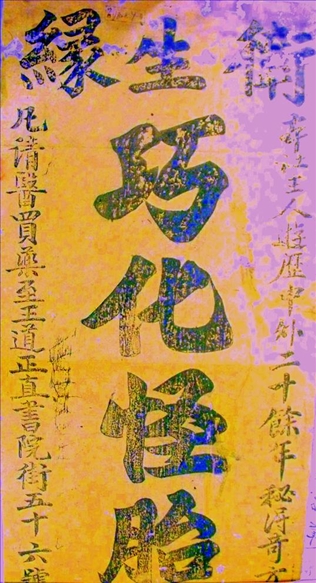 術生緣
本社主人遊歷中外二十餘年秘得奇方
巧化怪胎
凡請醫買藥至王道正直書院街五十六號